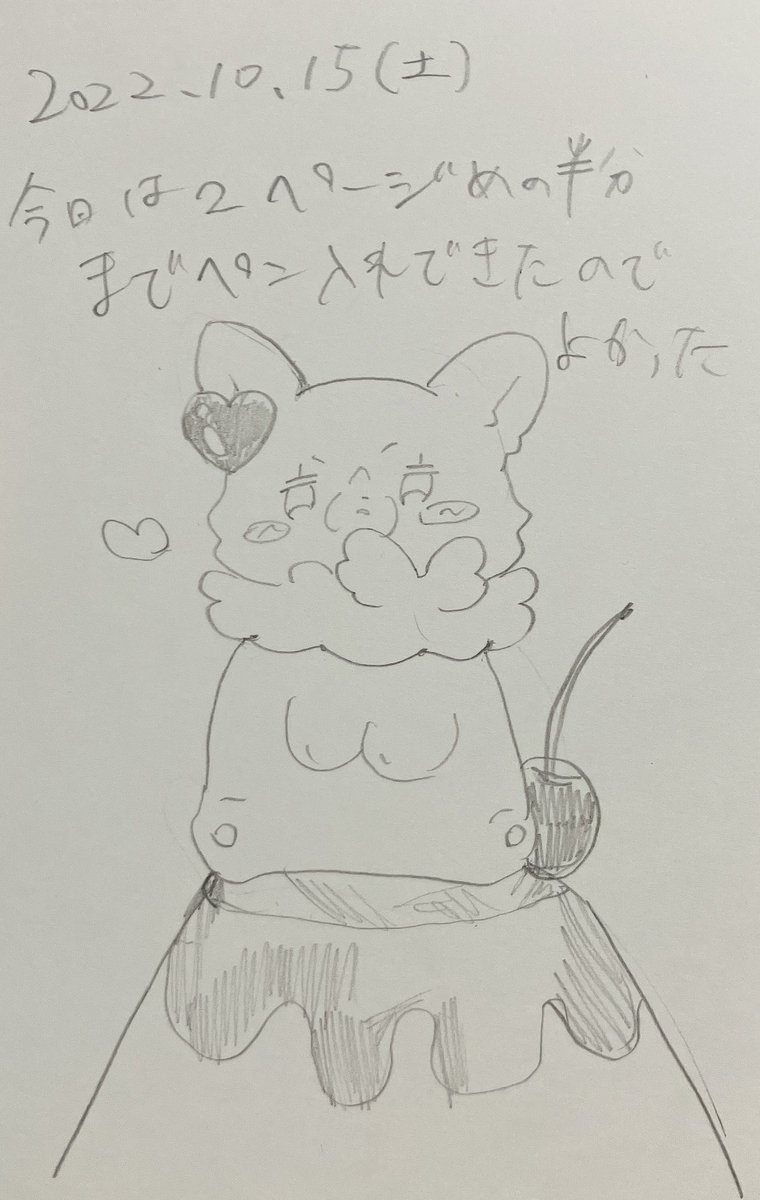 2022.10.15(土)
今日は2ページめの半分
までペン入れできたので
よかった